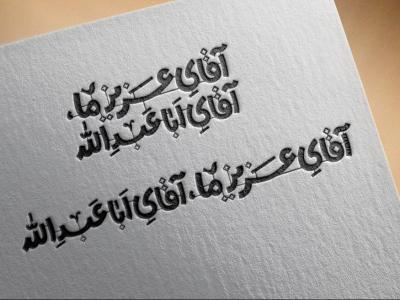 آقایِ عَزیزِ ما،
آقایِ اَباعَبدِالله
آقایِ عَزیزِ ما، آقایِ اَباعَبدِالله